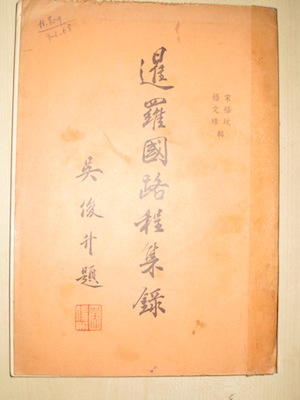 宋福玩
楊文珠 輯
暹羅國路程集錄
吳俊升題